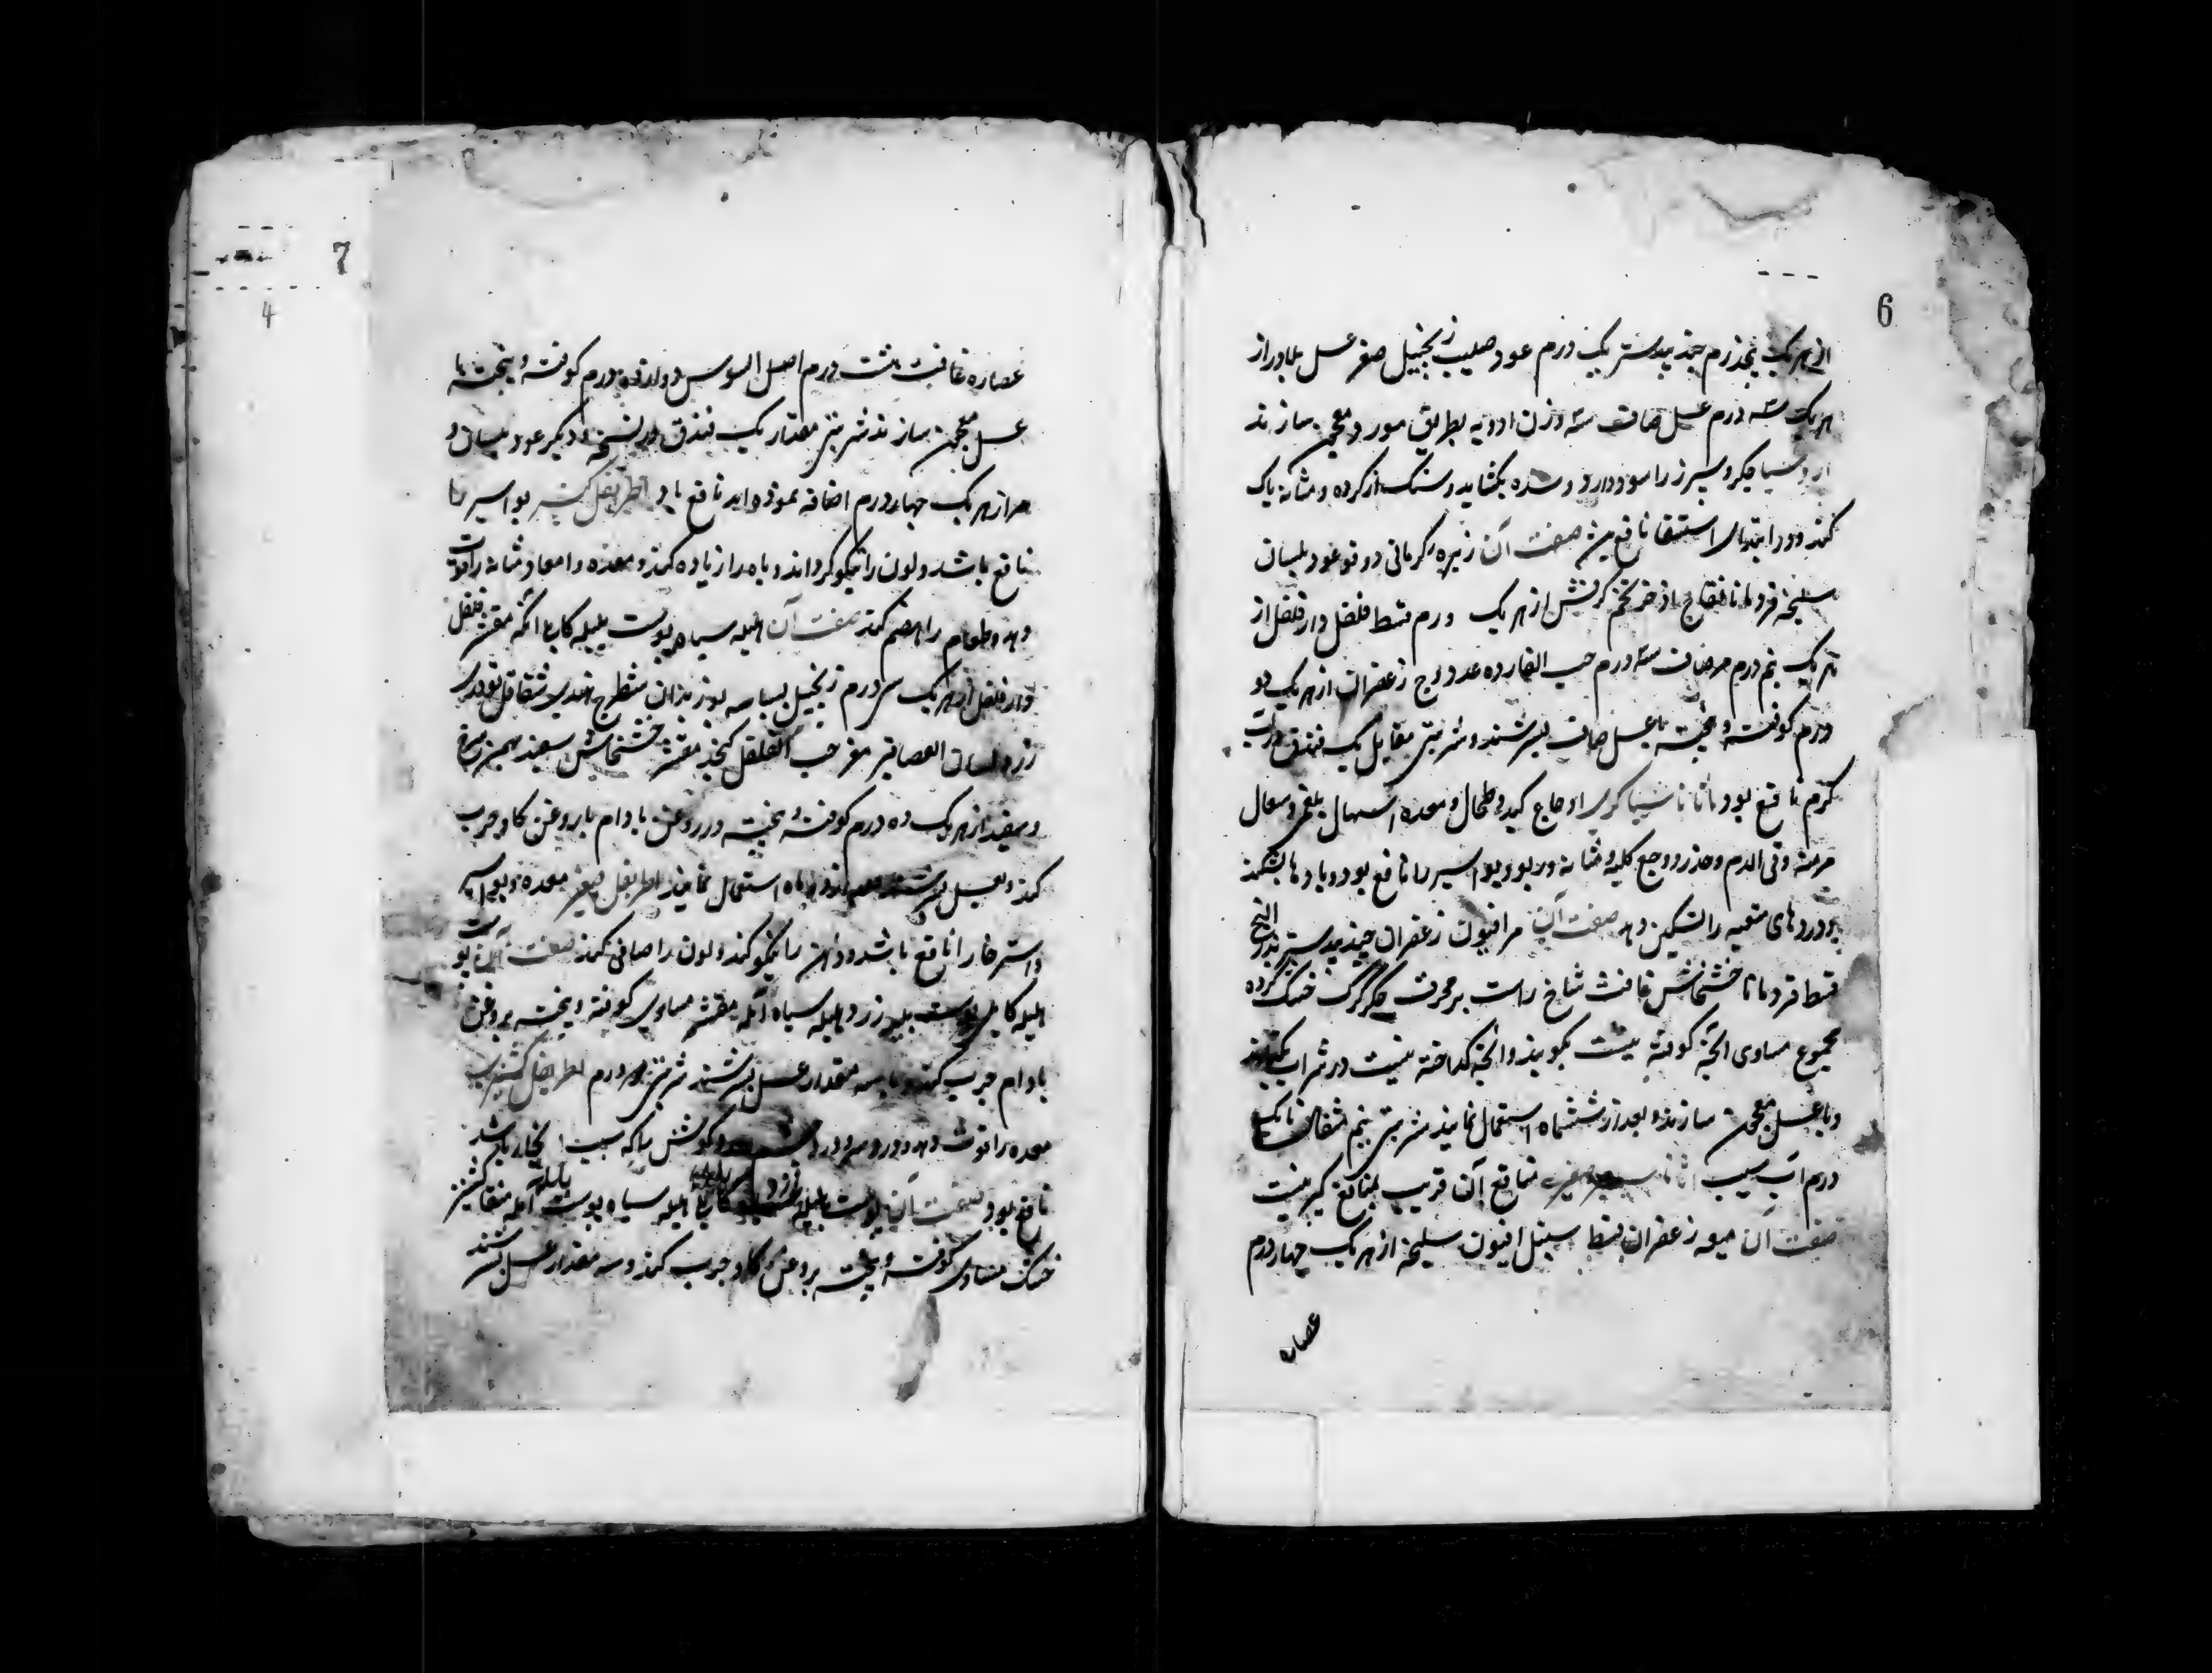 6
از هر یک پنجدرم جندبیدستر یک درم عود صلیب زنجبیل صغر عسل بلادر از
هر یک سه درم عسل صاف سه وزن ادویه بطریق مورد معجون سازند
جکر و سپرز را سود دارد و سده بکشاید و سنک از کرده و مثانه پاک
کند و در ابتدای استسقا نافع بود صفت آن زیره کرمانی دوقو عود بلسان
سلیخه قردمانا فقاح اذخر تخم کرفس از هر یک درم قسط فلفل دارفلفل از
هر یک پنم درم مرصاف سه درم حب الغار ده عدد وج زعفران از هر یک دو
درم کوفته و پخته با عسل صاف بسرشند و شربتی مقابل یک فندق در آب
کرم نافع بود اثاناسیا کبری اوجاع کبد و طحال و معده اسهال بلغمی و سعال
مزمنه و قی الدم و حذر و وجع کلیه و مثانه و ربو و بواسیر را نافع بود و بادها بشکند
و دردهای متعبه را تسکین دهد صفت آن مر افیون زعفران جندبیدستر بذر البنج
قسط قردمانا خشخاش غافث شاخ راست بز محرق جکر کرک خشک کرده
مجموع مساوی انچه کوفتنی نیست بکوبند و انچه کداختنی نیست در شراب بکدازند
و با عسل معجون سازند و بعد از ششماه استعمال نمایند شربتی پنم مثقال تا یک
درم آب سیب اثاناسیا صغیر منافع آن قریب بمنافع کبیر نیست
صفت آن میعه زعفران قسط سنبل افیون سلیخه از هر یک چهار درم
عصاره
7
4
عصاره غافث هشت درم اصل السوس دوازده درم کوفته و پخته با
عسل معجون سازند شربتی مقدار یک فندق و در نسخه دیکر عود بلسان و
مر از هر یک چهار درم اضافه نموده اند نافع باد اطریفل کبیر بواسیر را
نافع باشد و لون را نیکو کرداند و باه را زیاده کند و معده و امعا و مثانه را قوت
دهد و طعام را هضم کند صفت آن هلیله سیاه پوست بلیله کابلی آمله مقشر فلفل
دارفلفل از هر یک سی درم زنجبیل بسباسه بوزیدان شیطرج هندی شقاقل تودری
زرد لسان العصافیر مغز حب القلقل کنجد مقشر خشخاش سفید بهمن سرخ
و سفید از هر یک ده درم کوفته و پخته در روغن بادام یا روغن کاو چرب
کنند و بعسل بسرشند و بعد از دو ماه استعمال نمایند اطریفل صغیر معده و بواسیر
و استرخا را نافع باشد و ذهن را نیکو کند و لون را صافی کند صفت آن پوست
هلیله کابلی پوست بلیله زرد هلیله سیاه آمله مقشر مساوی کوفته و پخته بروغن
بادام چرب کنند و با سه مقدار عسل بسرشند شربتی دو درم اطریفل کشنیزی
معده را قوت دهد و درد سر و درد چشم و درد کوش را که سبب ان بخار باشد
نافع بود صفت آن پوست هلیله زرد کابلی هلیله سیاه پوست بلیله آمله منقا کشنیز
خشک مساوی کوفته و پخته بروغن کاو چرب کنند و سه مقدار عسل بسرشند